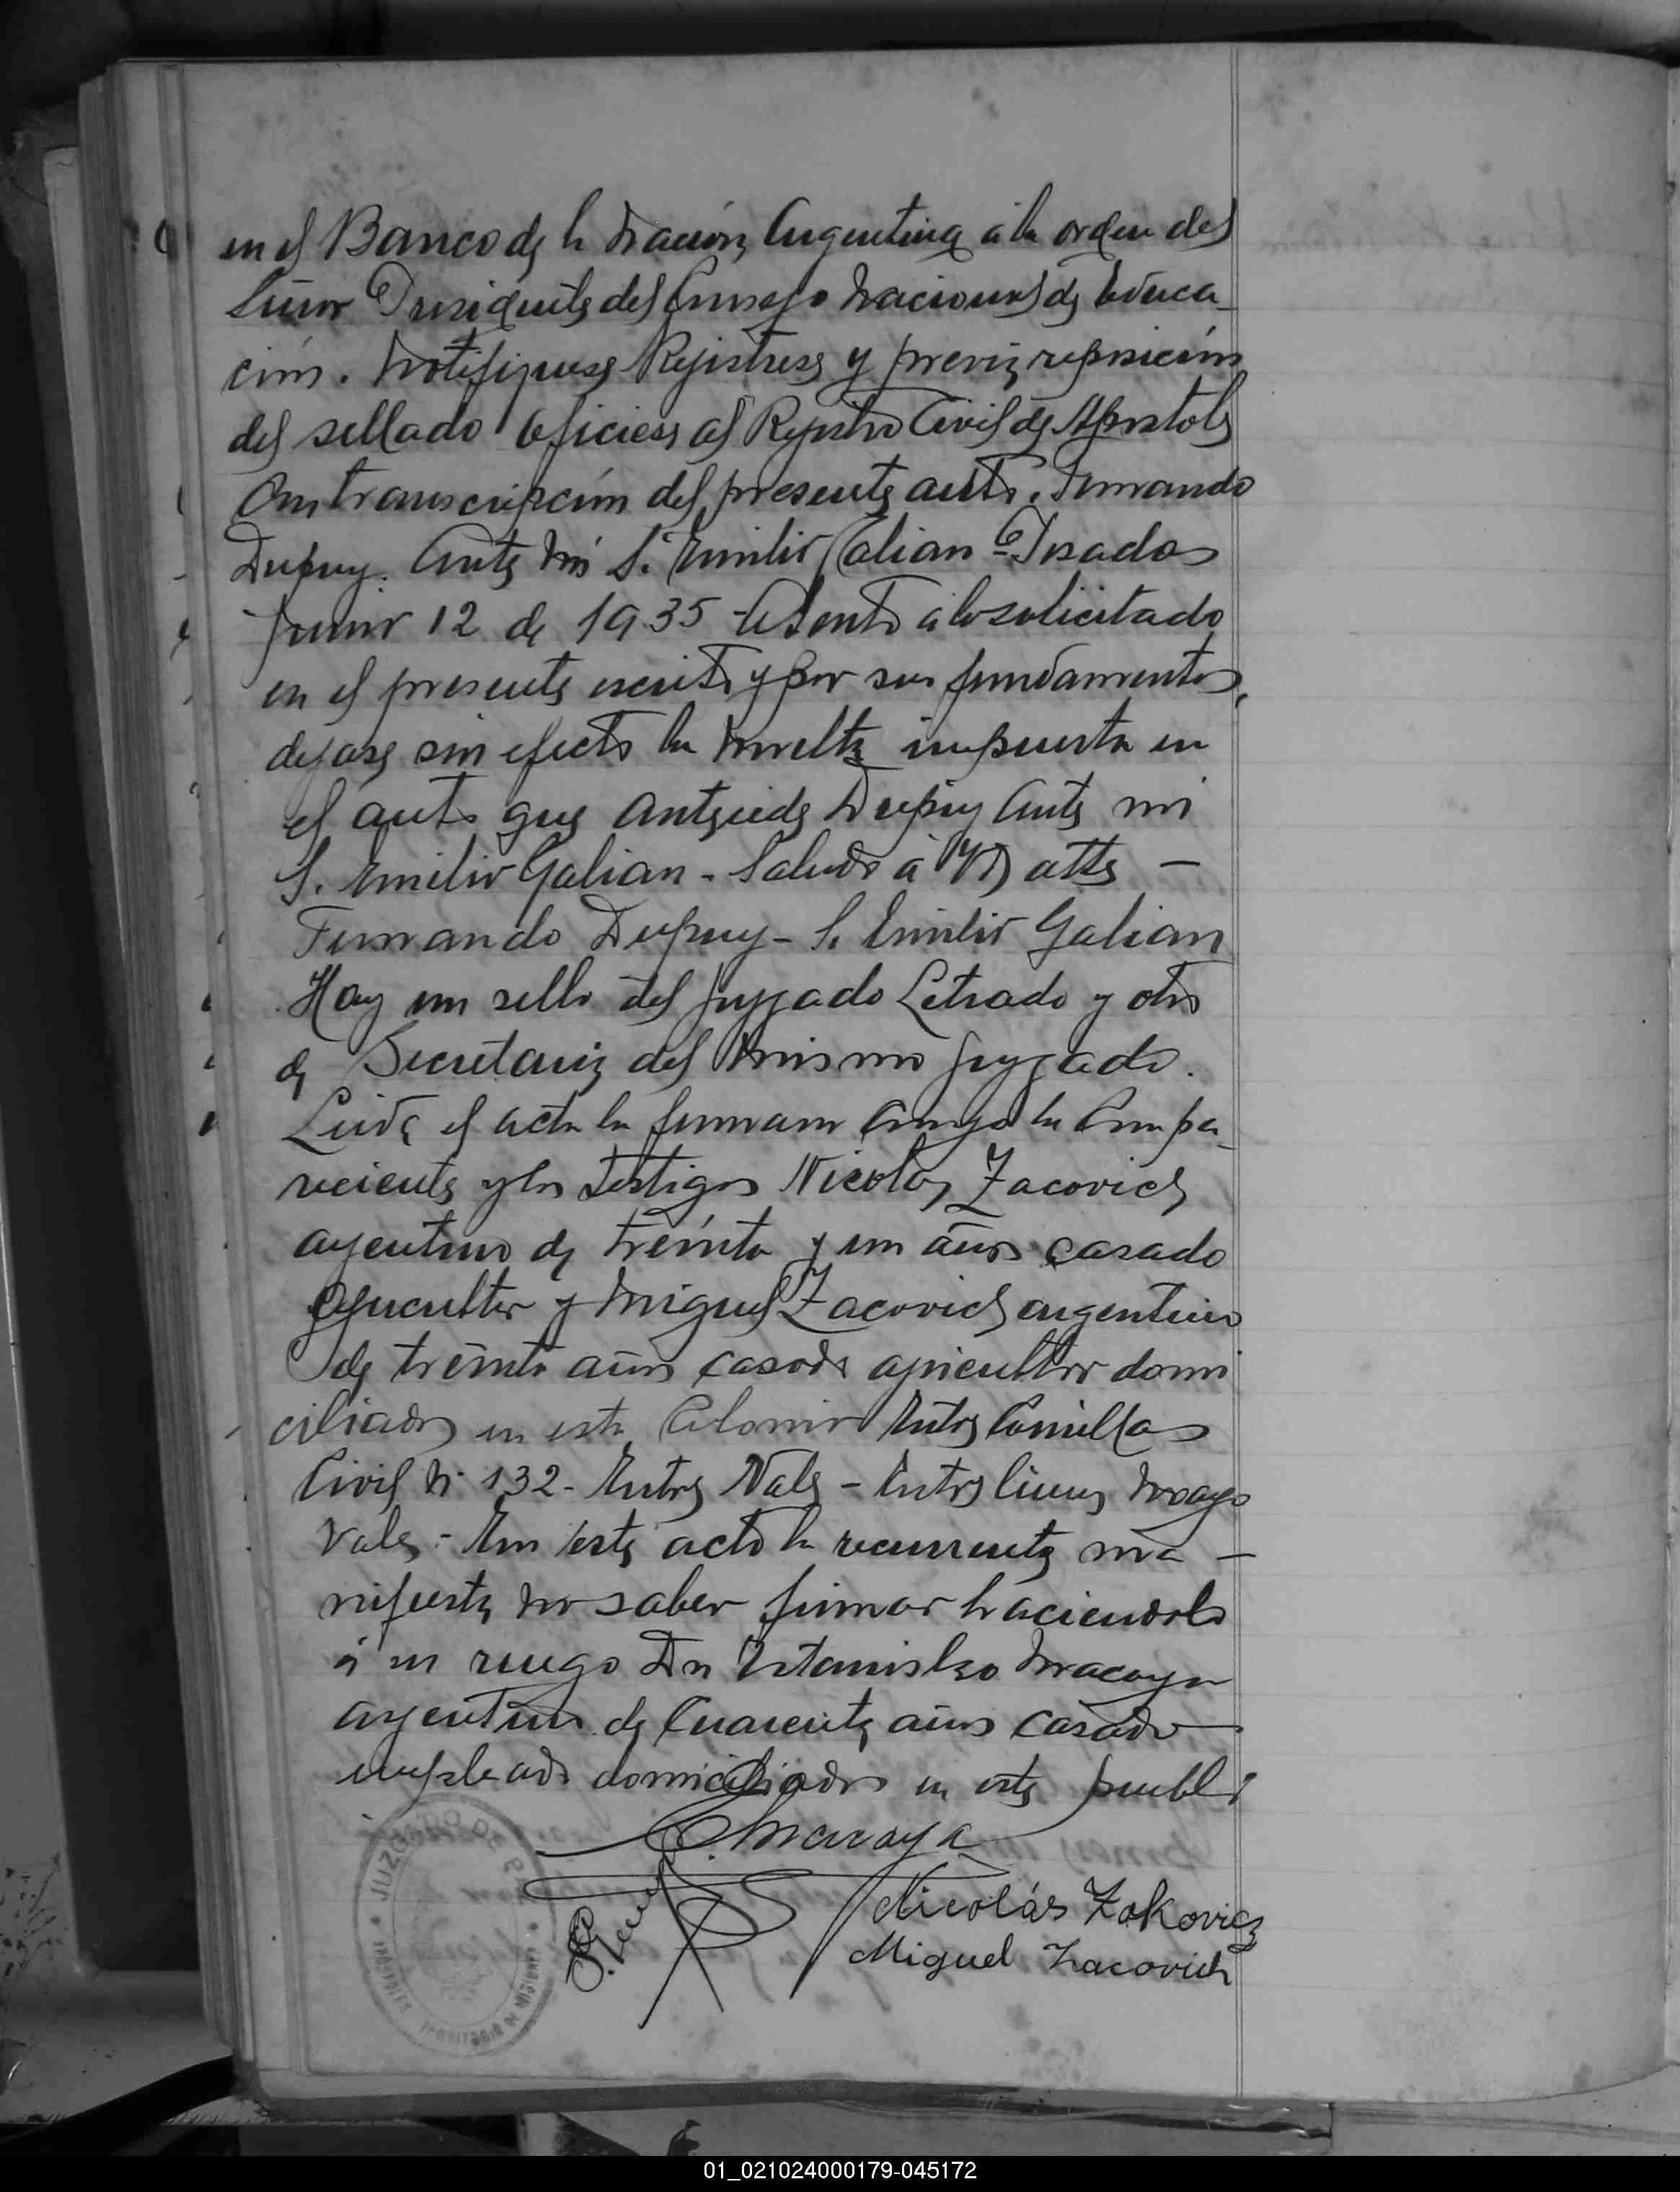 en el Banco de la Nación Argentina á la orden del
Señor Presidente del Consejo Nacional de Educa
ción. Notifiquese Registrese y previa reposición
del sellado Oficiese al Registro Civil de Apostoles
Con transcripción del presente auto. Fernando
Dupuy. Ante Mi S. Emilio Galian - Posadas
Junio 12 de 1935 - Atento á lo solicitado
en el presente escrito y por sus fundamentos,
dejase sin efecto la multa impuesta en
el auto que antecede Dupuy Ante mi
S. Emilio Galian - Saludo á Vd atte —
Fernando Dupuy - S. Emilio Galian
Hay un sello del Juzgado Letrado y otro
de Secretaria del Mismo Juzgado.
Leida el acta la firmaron Conmigo la Compa
reciente y los testigos Nicolas Zacovich
argentino de treinta y un años casado
agricultor y Miguel Zacovich argentino
de treinta años casado agricultor domi
ciliados en esta Colonia Entre Comillas
Civil N. 132 - Entre Vale - Entre lineas Mayo
Vale - En este acto la recurrente ma —
nifiesta no saber firmar haciendolo
á su ruego Dn Estanislao Macaya
argentino de Cuarenta años casado
empleado domiciliado en este pueblo
E. Macaya
Nicolás Zakovicz
Miguel Zacovich
JUZGADO DE P
APOSTOLES
TERRITORIO DE MISIONES
01_021024000179-045172